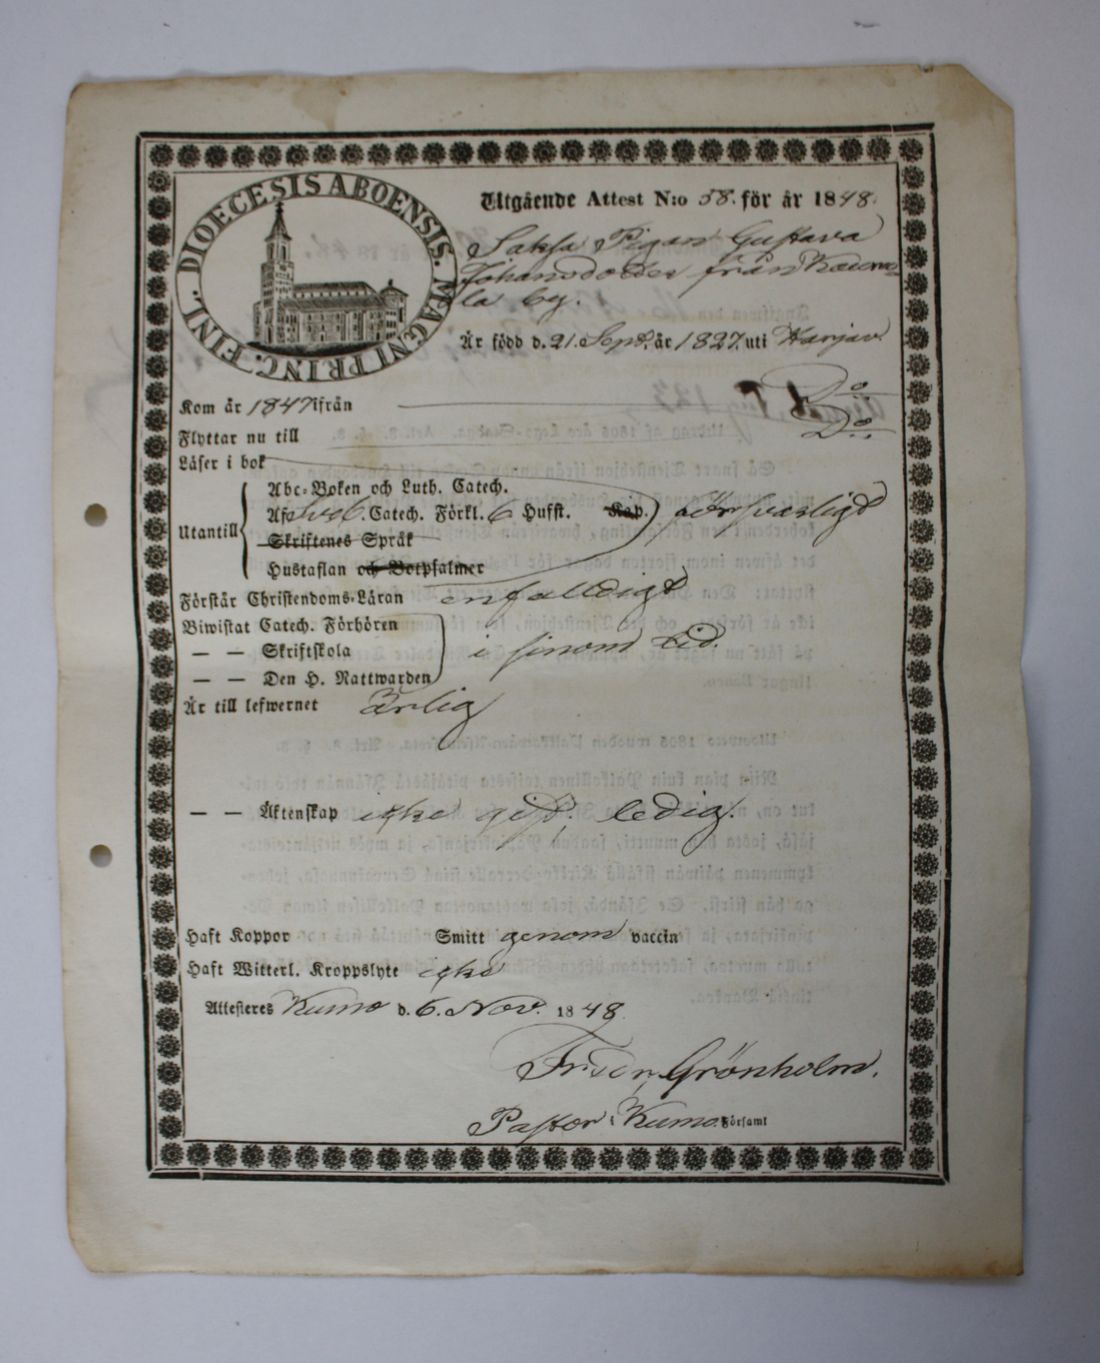 DIOECESIS ABOENSIS. MAGNI PRINC. FINL.
Utgående Attest N:o 58. för år 1848.
Pigan Gustava
Johansdotter från
la by.
Är född d. 21. Sept. år 1827. uti Harjav.
Kom år 1847 ifrån Do
Flyttar nu till Do
Läser i bok
Utantill
Abc-Boken och Luth. Catech.
Af Sveb. Catech. Förkl. 6 Hufst. Kap. försvarligt
Skriftenes Språk
Hustaflan och Botpsalmer
Förstår Christendoms-Läran enfalldigt
Biwistat Catech. Förhören
— — Skriftskola i sinom tid.
— — Den H. Nattwarden
Är till lefwernet ärlig
— — Äktenskap icke gift, ledig.
Haft Koppor Smitt genom vaccin
Haft Witterl. Kroppslyte icke
Attesteres Kumo d. 6. Nov. 1848.
Grönholm.
Pastor i Kumo Församl